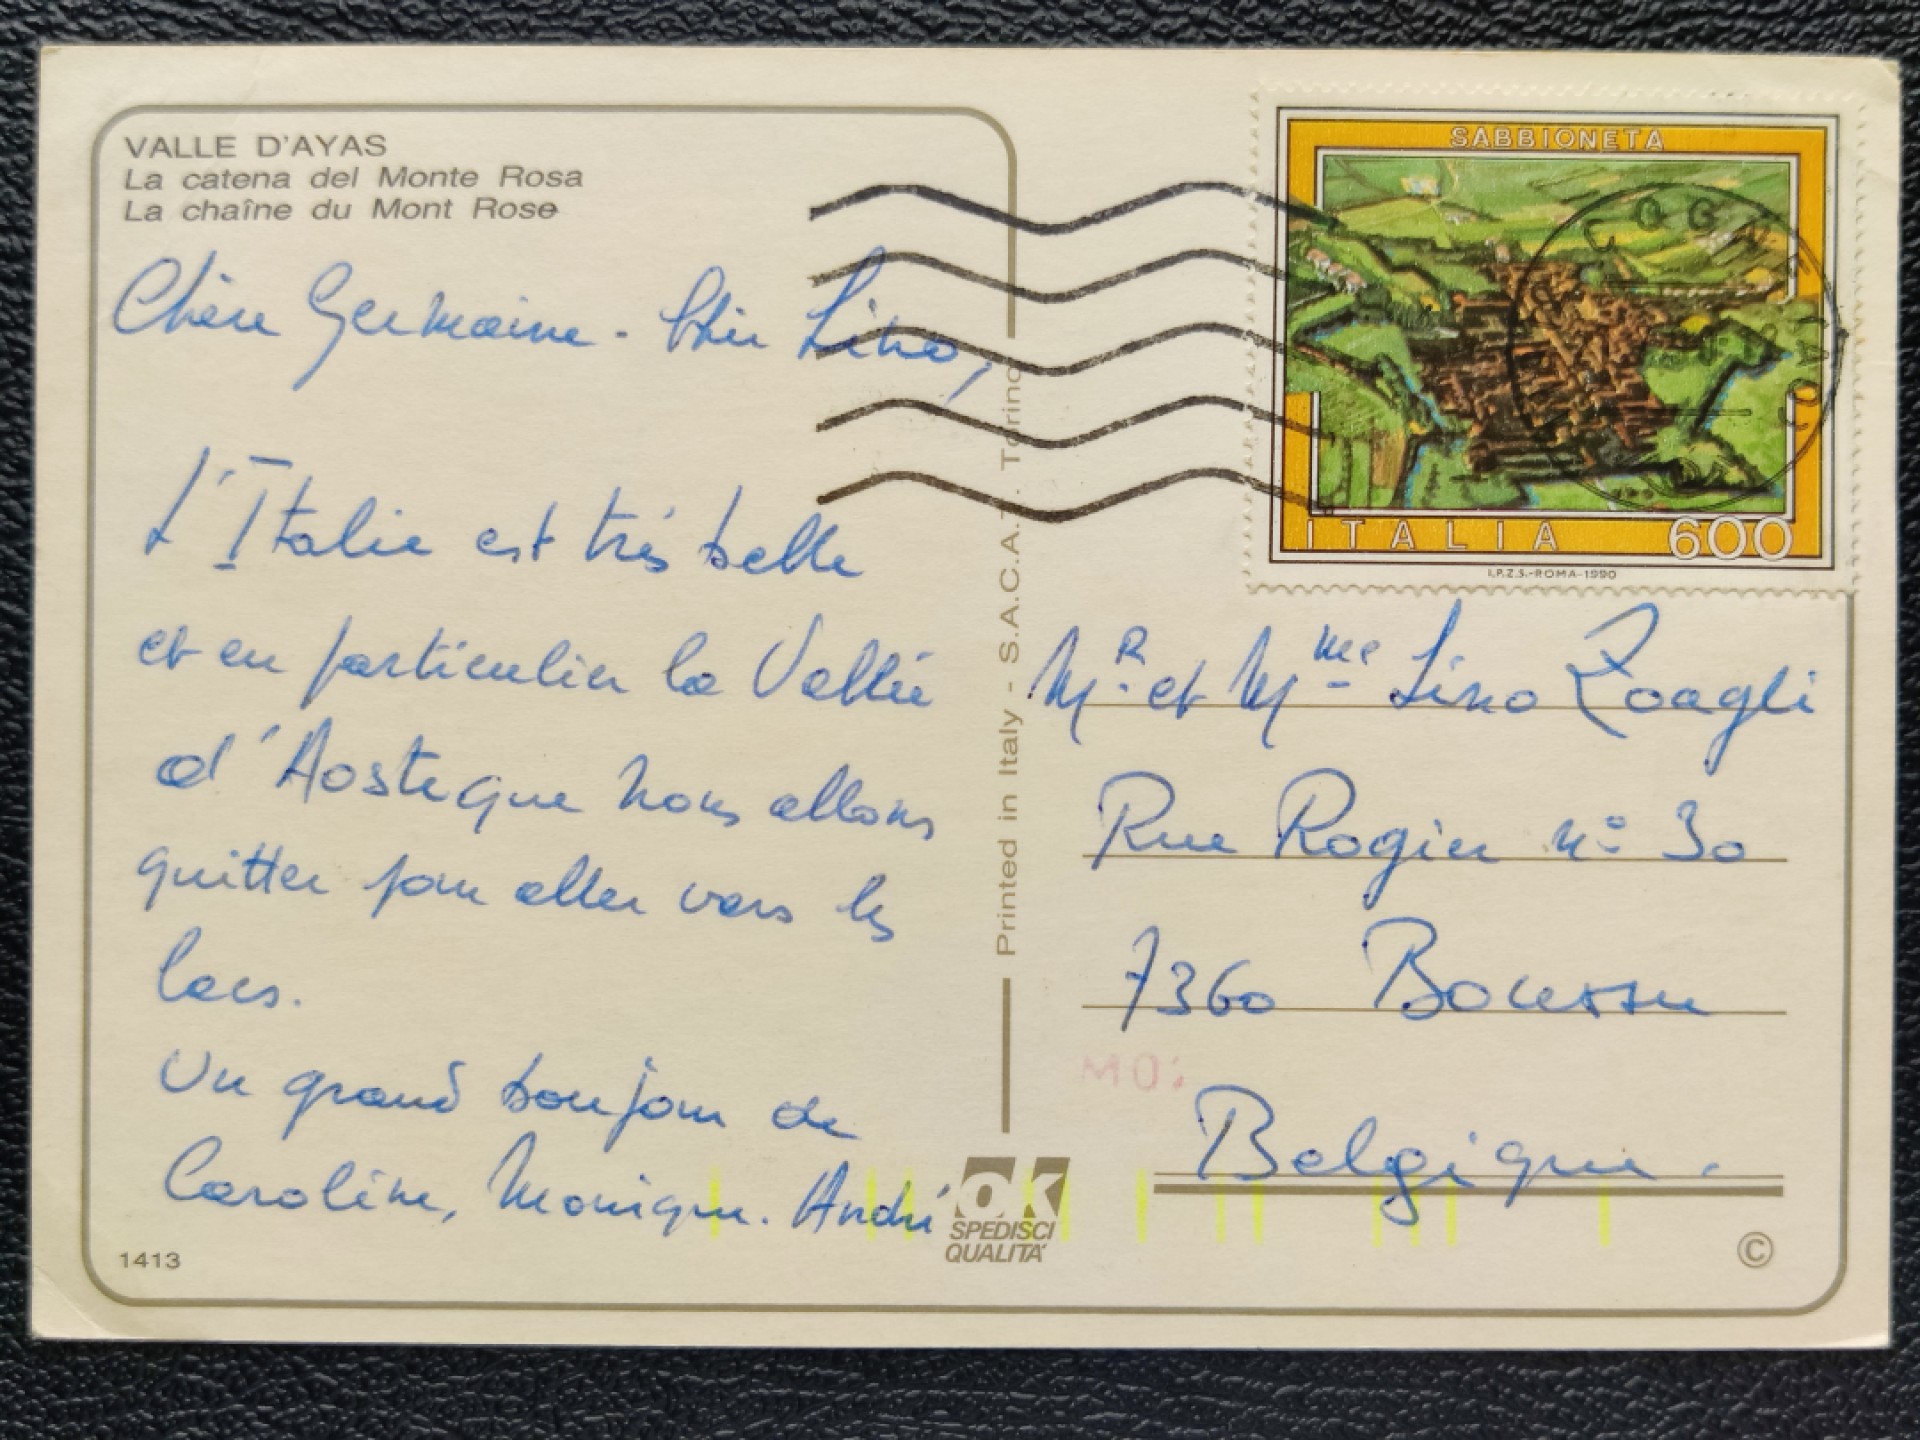 VALLE D'AYAS
La catena del Monte Rosa
La chaîne du Mont Rose
Chère Germaine - Cher Lino,
L'Italie est très belle
et en particulier la Vallée
d'Aoste que nous allons
quitter pour aller vers les
lacs.
Un grand bonjour de
Caroline, Monique. André
1413
Printed in Italy - S.A.C.A.T. Torino
ok
SPEDISCI
QUALITA'
SABBIONETA
ITALIA 600
I.P.Z.S.-ROMA-1990
Mr. et Mme Lino Zoagli
Rue Rogier n° 30
7360 Boussu
Belgique.
©